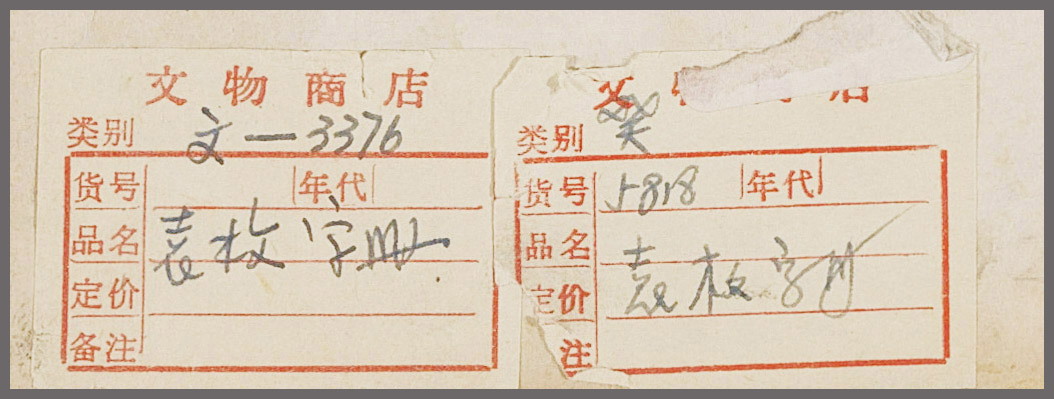 文物商店
类别 文-3376
货号 年代
品名 袁枚字册
定价
备注
文物 店
类别
货号 5818 年代
品名 袁枚字册
定价
注